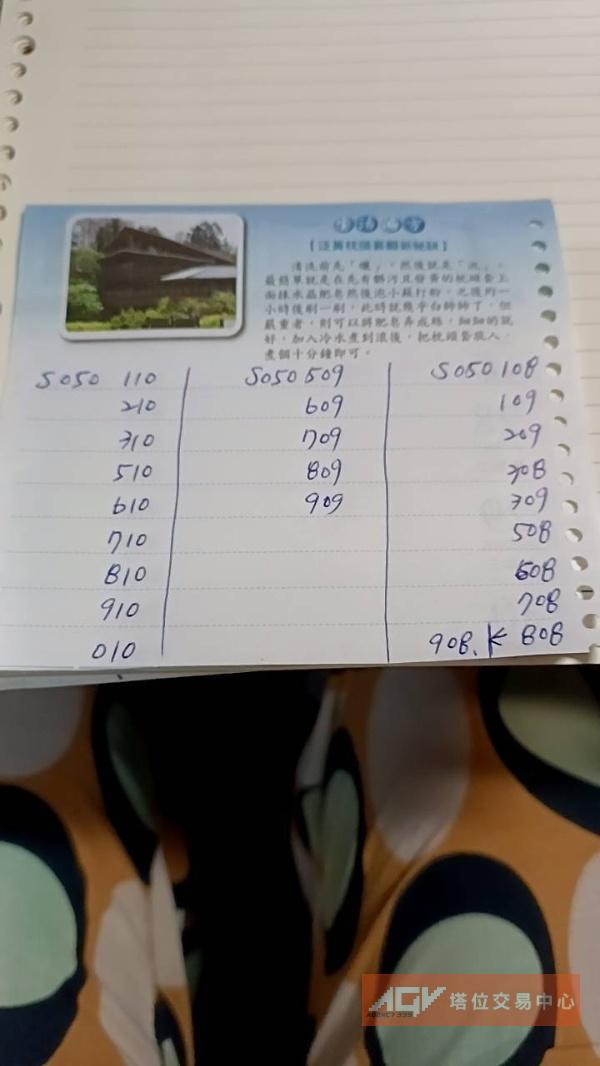 【泛黃枕頭套翻新秘訣】
清洗前先「曬」，然後就是「泡」。
最簡單就是在先有髒污且發黃的枕頭套上
面抹水晶肥皂然後泡小蘇打粉，之後約一
小時後刷一刷，此時就幾乎白帥帥了，但
嚴重者，則可以將肥皂弄成絲，細細的就
好，加入冷水煮到滾後，把枕頭套放入，
煮個十分鐘即可。
5050 110
210
310
510
610
710
810
910
010
5050 509
609
709
809
909
5050 108
109
209
308
309
508
608
708
908. K 808
AGV 塔位交易中心
AGENCY 999